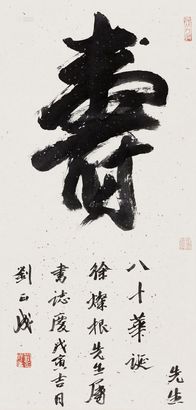 壽
先生
八十華誕
徐燦根先生屬
書誌慶戊寅吉月
劉正成